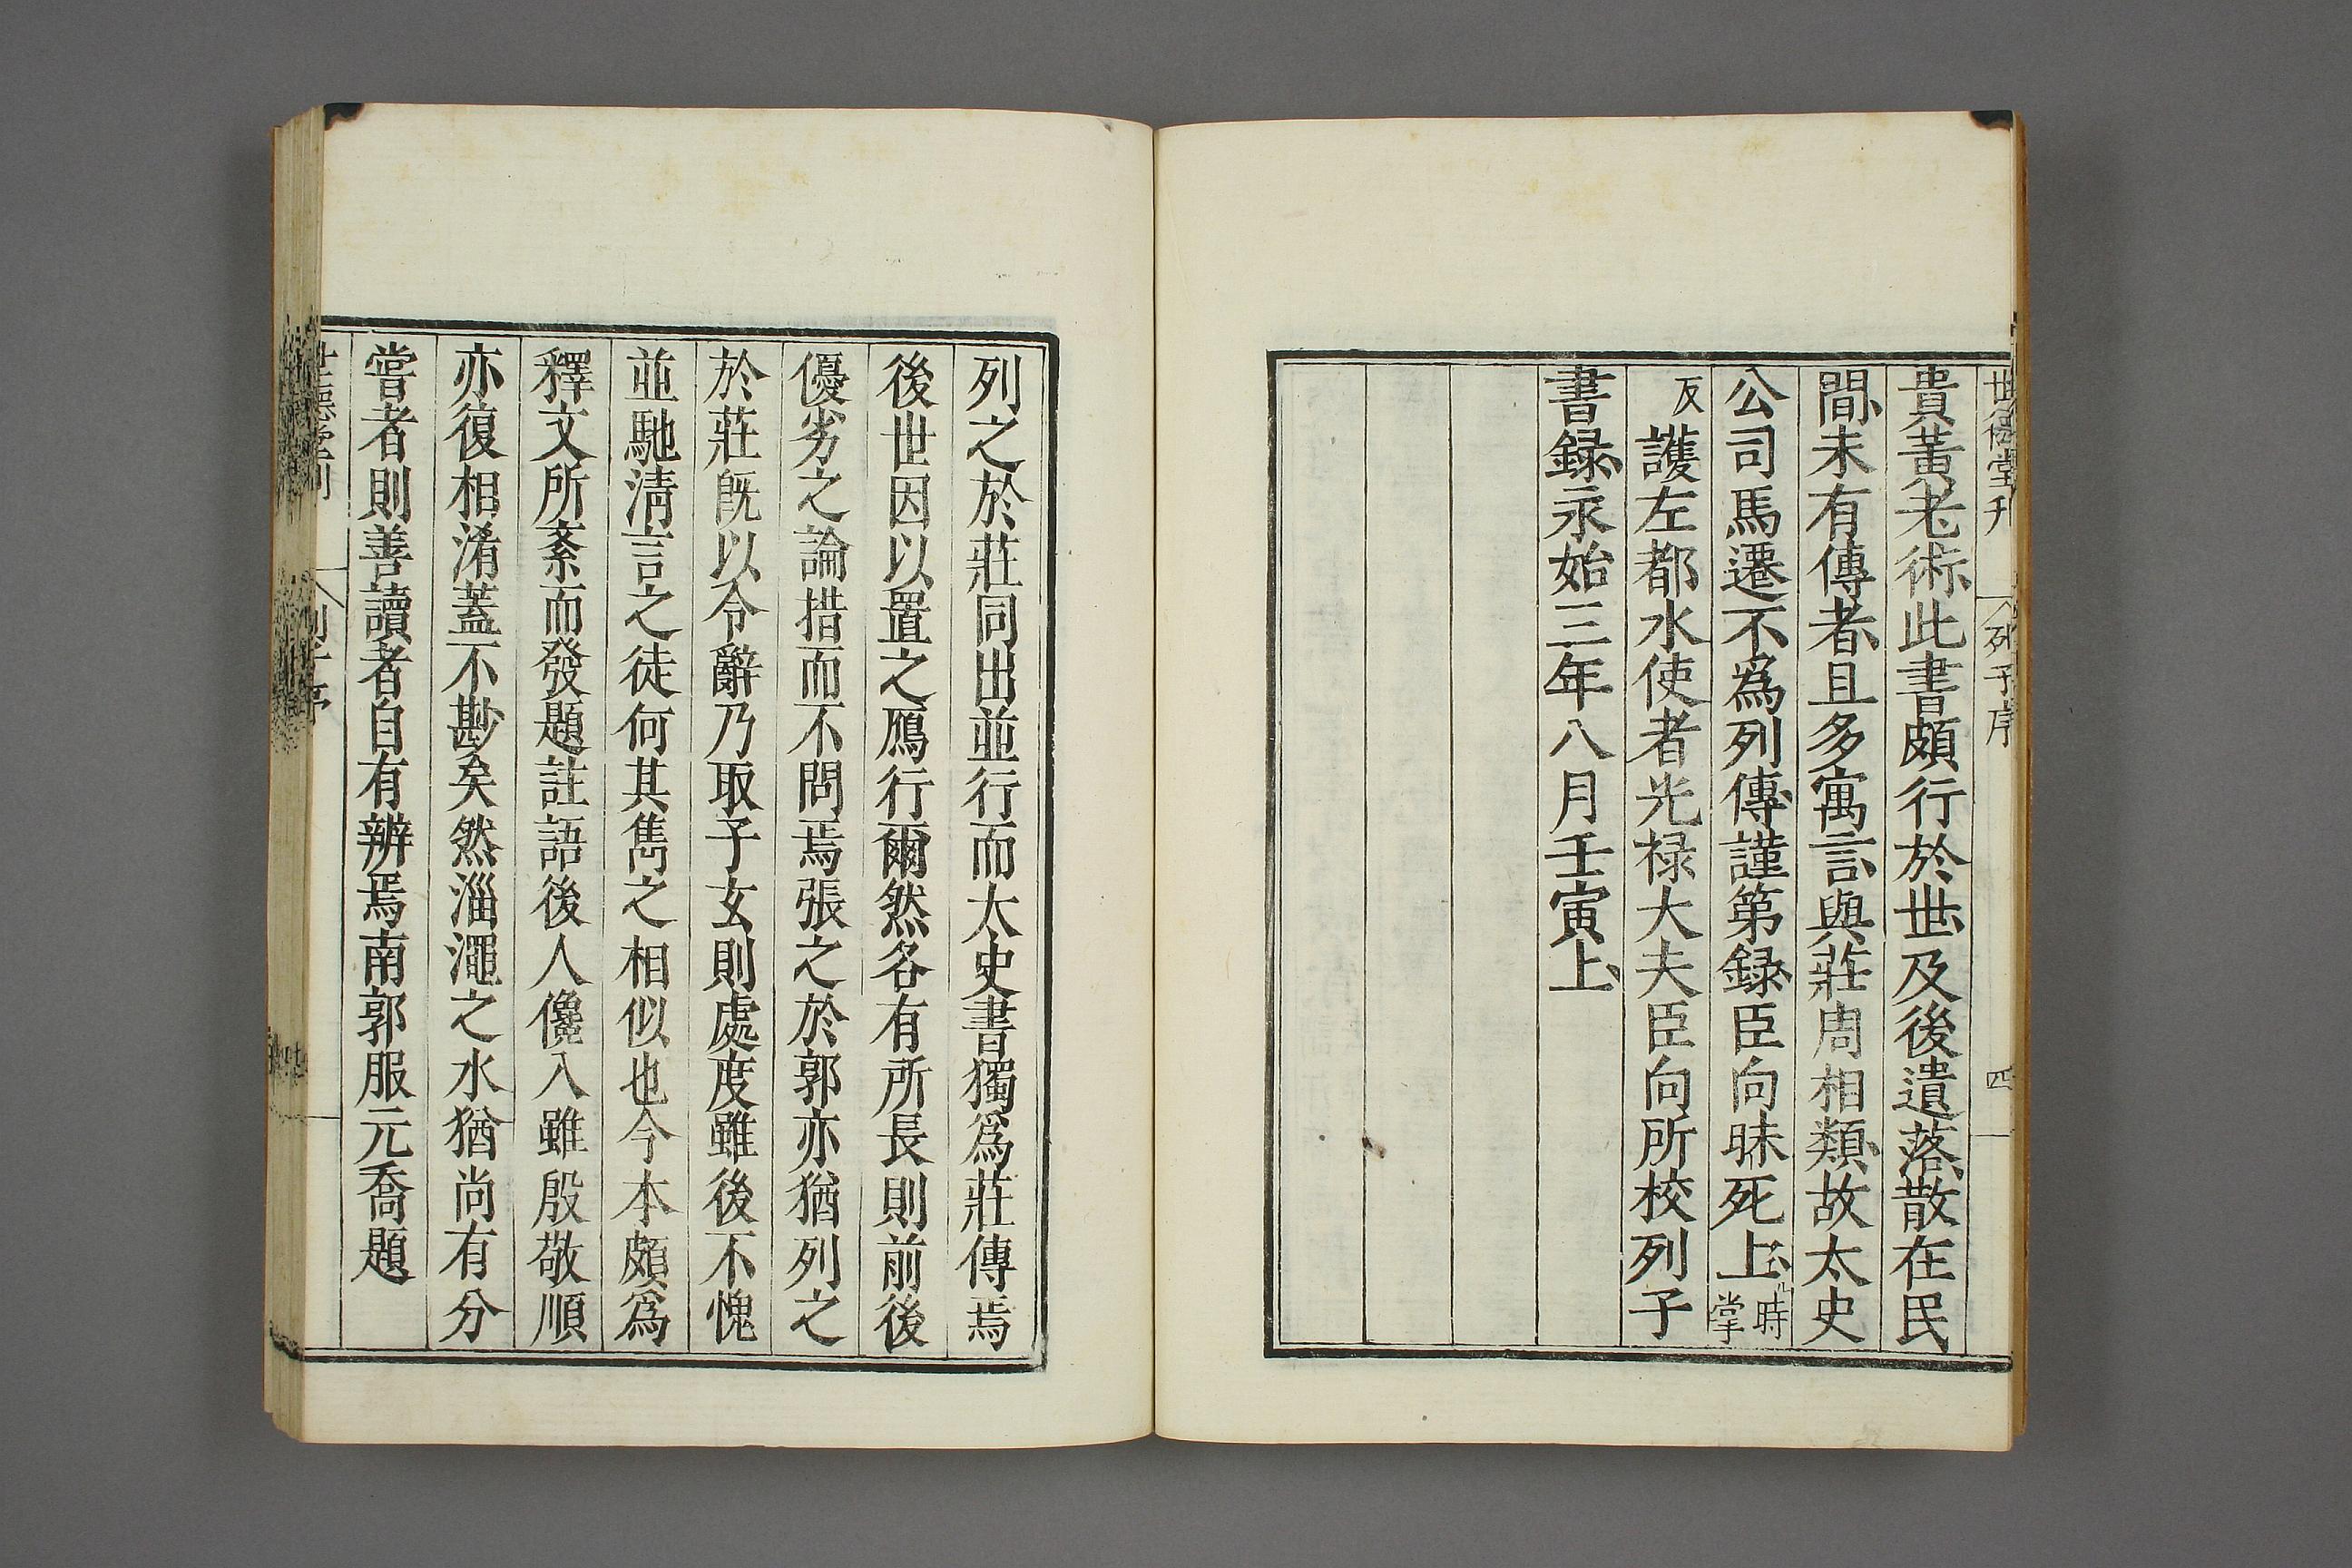 世德堂刊 列子序 四
貴黃老術此書頗行於世及後遺落散在民
間未有傳者且多寓言與莊周相類故太史
公司馬遷不爲列傳謹第録臣向昧死上時掌
反護左都水使者光禄大夫臣向所校列子
書録永始三年八月壬寅上
列之於莊同出並行而太史書獨爲莊傳焉
後世因以置之鴈行爾然各有所長則前後
優劣之論措而不問焉張之於郭亦猶列之
於莊旣以令辭乃取子玄則處度雖後不愧
並馳淸言之徒何其雋之相似也今本頗爲
釋文所紊而發題註語後人儳入雖殷敬順
亦復相淆蓋不尠矣然淄澠之水猶尚有分
嘗者則善讀者自有辨焉南郭服元喬題
世德堂刊 列子序